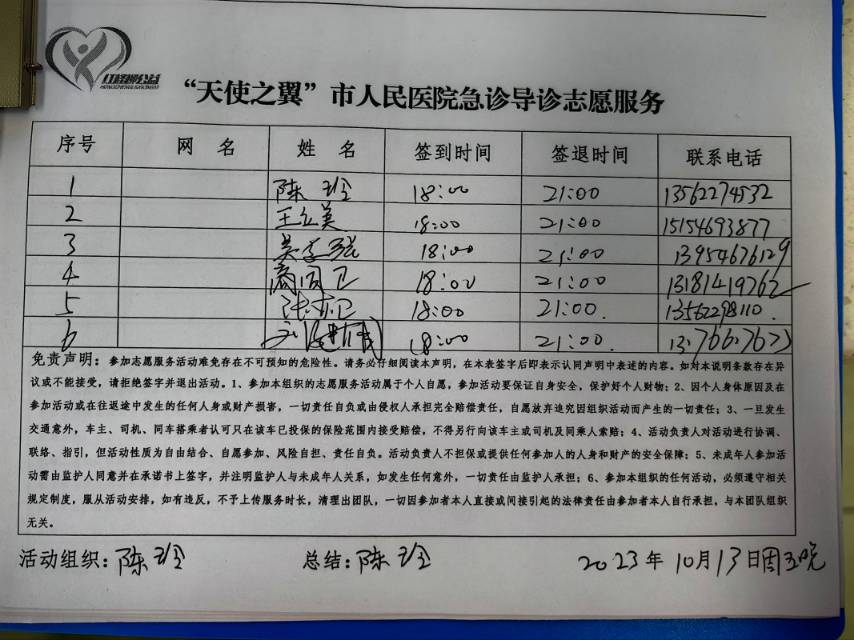 红棉树公益
“天使之翼”市人民医院急诊导诊志愿服务
序号 网 名 姓 名 签到时间 签退时间 联系电话
1 陈玲 18:00 21:00 13562274532
2 王立美 18:00 21:00 15154693877
3 18:00 21:00 13954676129
4 18:00 21:00 13181419762
5 18:00 21:00. 13562298110.
6 18:00 21:00.
免责声明：参加志愿服务活动难免存在不可预知的危险性。请务必仔细阅读本声明，在本表签字后即表示认同声明中表述的内容。如对本说明条款存在异
议或不能接受，请拒绝签字并退出活动。1、参加本组织的志愿服务活动属于个人自愿，参加活动要保证自身安全，保护好个人财物；2、因个人身体原因及在
参加活动或在往返途中发生的任何人身或财产损害，一切责任自负或由侵权人承担完全赔偿责任，自愿放弃追究因组织活动而产生的一切责任；3、一旦发生
交通意外，车主、司机、同车搭乘者认可只在该车已投保的保险范围内接受赔偿，不得另行向该车主或司机及同乘人索赔；4、活动负责人对活动进行协调、
联络、指引，但活动性质为自由结合、自愿参加、风险自担、责任自负。活动负责人不担保或提供任何参加人的人身和财产的安全保障；5、未成年人参加活
动需由监护人同意并在承诺书上签字，并注明监护人与未成年人关系，如发生任何意外，一切责任由监护人承担；6、参加本组织的任何活动，必须遵守相关
规定制度，服从活动安排，如有违反，不予上传服务时长，清理出团队，一切因参加者本人直接或间接引起的法律责任由参加者本人自行承担，与本团队组织
无关。
活动组织：陈玲 总结：陈玲 2023年10月13日周五晚